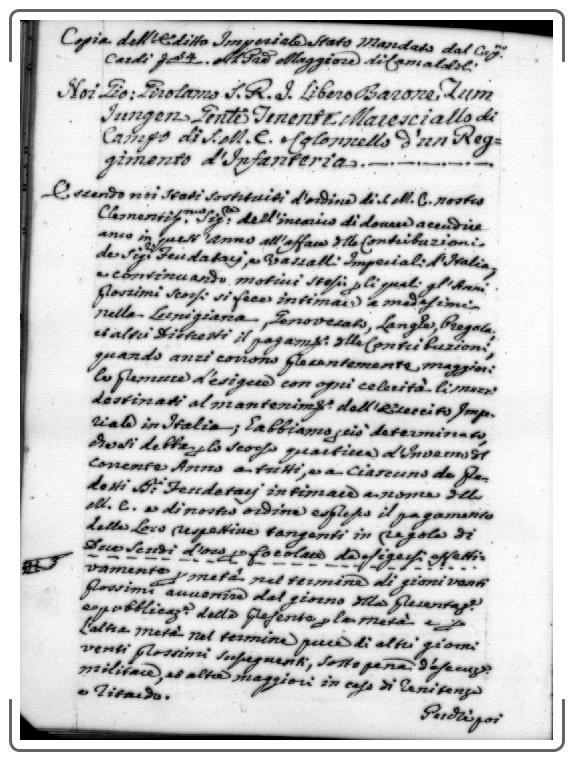 Copia dell'Editto Imperiale Stato Mandato dal Cap.no
Cardi Maggiore di Camaldoli
Noi Gio: Girolamo S. R. I. Libero Barone Zum
Jungen Gentle Tenente Maresciallo di
Campo di S. M. C. e Colonnello d'un Reg=
gimento d'Infanteria.
Essendo noi stati sostituiti d'ordine di S. M. C. nostro
Clementiss.mo Sig.re dell'incarico di dover accudire
anco in quest'anno all'affare delle Contribuzioni
de Sig.ri Feudatarj, e Vassalli Imperiali d'Italia,
e continuando motivi stessi, per li quali gl'Anni
prossimi scorsi si fece intimare a medesimi
nella Lunigiana, Genovesato, Langhe,
et altri Distretti il pagam.to delle Contribuzioni,
quando anzi corrono presentemente maggiori
le premure d'esigere con ogni celerità li mezzi
destinati al mantenim.to dell'Esercito Impe-
riale in Italia; Eabbiamo perciò determinato,
che si debba per lo scorso quartiere d'Inverno del
corrente Anno a tutti, e a ciascuno de pre-
detti Feudatarj intimare a nome della
M. C. e di nostro ordine espresso il pagamento
delle Loro respetive tangenti in regola di
Due Scudi d'oro per focolare da esigersi effetti-
vamente per metà nel termine di giorni venti
prossimi avvenire dal giorno della
e pubblicaz.e della presente per la metà e per
l'altra metà nel termine pure di altri giorni
venti prossimi susseguenti, sotto pena d'esecuz.e
militare, et altre maggiori in caso di renitenza
o ritardo.
poi